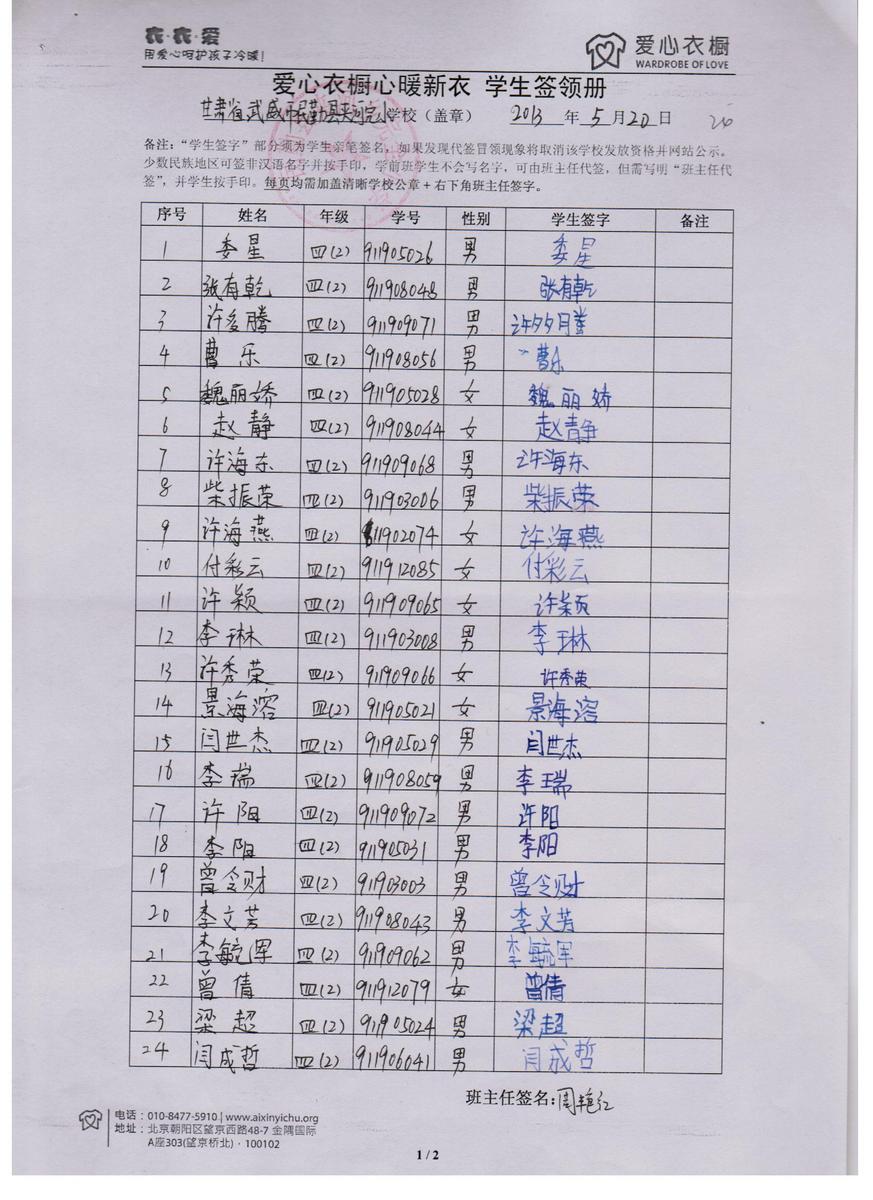 衣·衣·爱
用爱心呵护孩子冷暖!
爱心衣橱
WARDROBE OF LOVE
爱心衣橱心暖新衣 学生签领册
甘肃省武威市民勤县夹河完小学校（盖章） 2013 年 5 月 20 日
备注：“学生签字”部分须为学生亲笔签名，如果发现代签冒领现象将取消该学校发放资格并网站公示。
少数民族地区可签非汉语名字并按手印，学前班学生不会写名字，可由班主任代签，但需写明“班主任代
签”，并学生按手印。每页均需加盖清晰学校公章+右下角班主任签字。
序号 姓名 年级 学号 性别 学生签字 备注
1 委星 四(2) 911905026 男 委星
2 张有乾 四(2) 911908048 男 张有乾
3 许多腾 四(2) 911909071 男 许多腾
4 曹乐 四(2) 911908056 男 曹乐
5 魏丽娇 四(2) 911905028 女 魏丽娇
6 赵静 四(2) 911908044 女 赵静
7 许海东 四(2) 911909068 男 许海东
8 柴振荣 四(2) 911903006 男 柴振荣
9 许海燕 四(2) 911902074 女 许海燕
10 付彩云 四(2) 911912085 女 付彩云
11 许颖 四(2) 911909065 女 许颖
12 李琳 四(2) 911903008 男 李琳
13 许秀荣 四(2) 911909066 女 许秀荣
14 景海溶 四(2) 911905021 女 景海溶
15 闫世杰 四(2) 911905029 男 闫世杰
16 李瑞 四(2) 911908059 男 李瑞
17 许阳 四(2) 911909072 男 许阳
18 李阳 四(2) 911905031 男 李阳
19 曾令财 四(2) 911903003 男 曾令财
20 李文芳 四(2) 911908043 男 李文芳
21 李毓军 四(2) 911909062 男 李毓军
22 曾倩 四(2) 911912079 女 曾倩
23 梁超 四(2) 911905024 男 梁超
24 闫成哲 四(2) 911906041 男 闫成哲
班主任签名:周艳红
电话：010-8477-5910 | www.aixinyichu.org
地址：北京朝阳区望京西路48-7 金隅国际
A座303(望京桥北)·100102
1 / 2